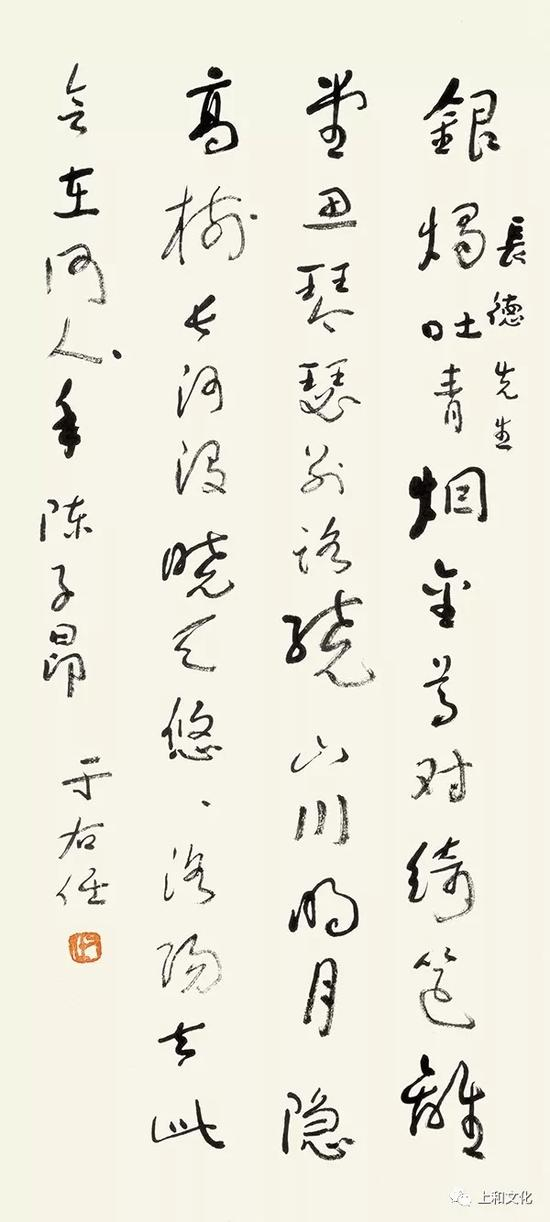 長德先生
銀燭吐青烟金尊对綺筵離
堂思琴瑟别路繞山川明月隐
高樹長河没曉天悠、洛陽去此
会在何人、年 陳子昂
于右任
上和文化